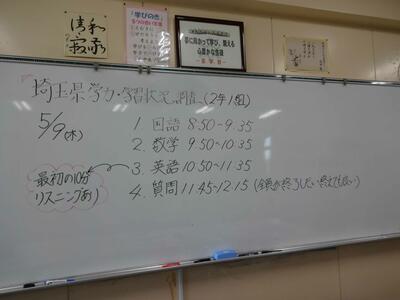 「学びのき」
夢に向かって学び、鍛える
心豊かな生徒
埼玉県学力・学習状況調査(2年1組)
5/9(木)
1. 国語 8:50~9:35
2. 数学 9:50~10:35
3. 英語 10:50~11:35
最初の10分
リスニングあり
4. 質問 11:45~12:15 (全員が終了しだい終えてもよい)